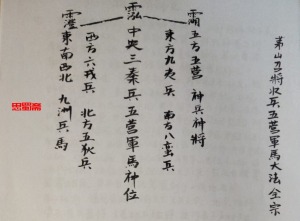 茅山五將收兵五营軍馬大法全宗
五方五营 神兵神將
東方九夷兵 南方八蛮兵
中央三秦兵五营軍馬神位
西方六戎兵 北方五狄兵
東南西北 九洲兵馬